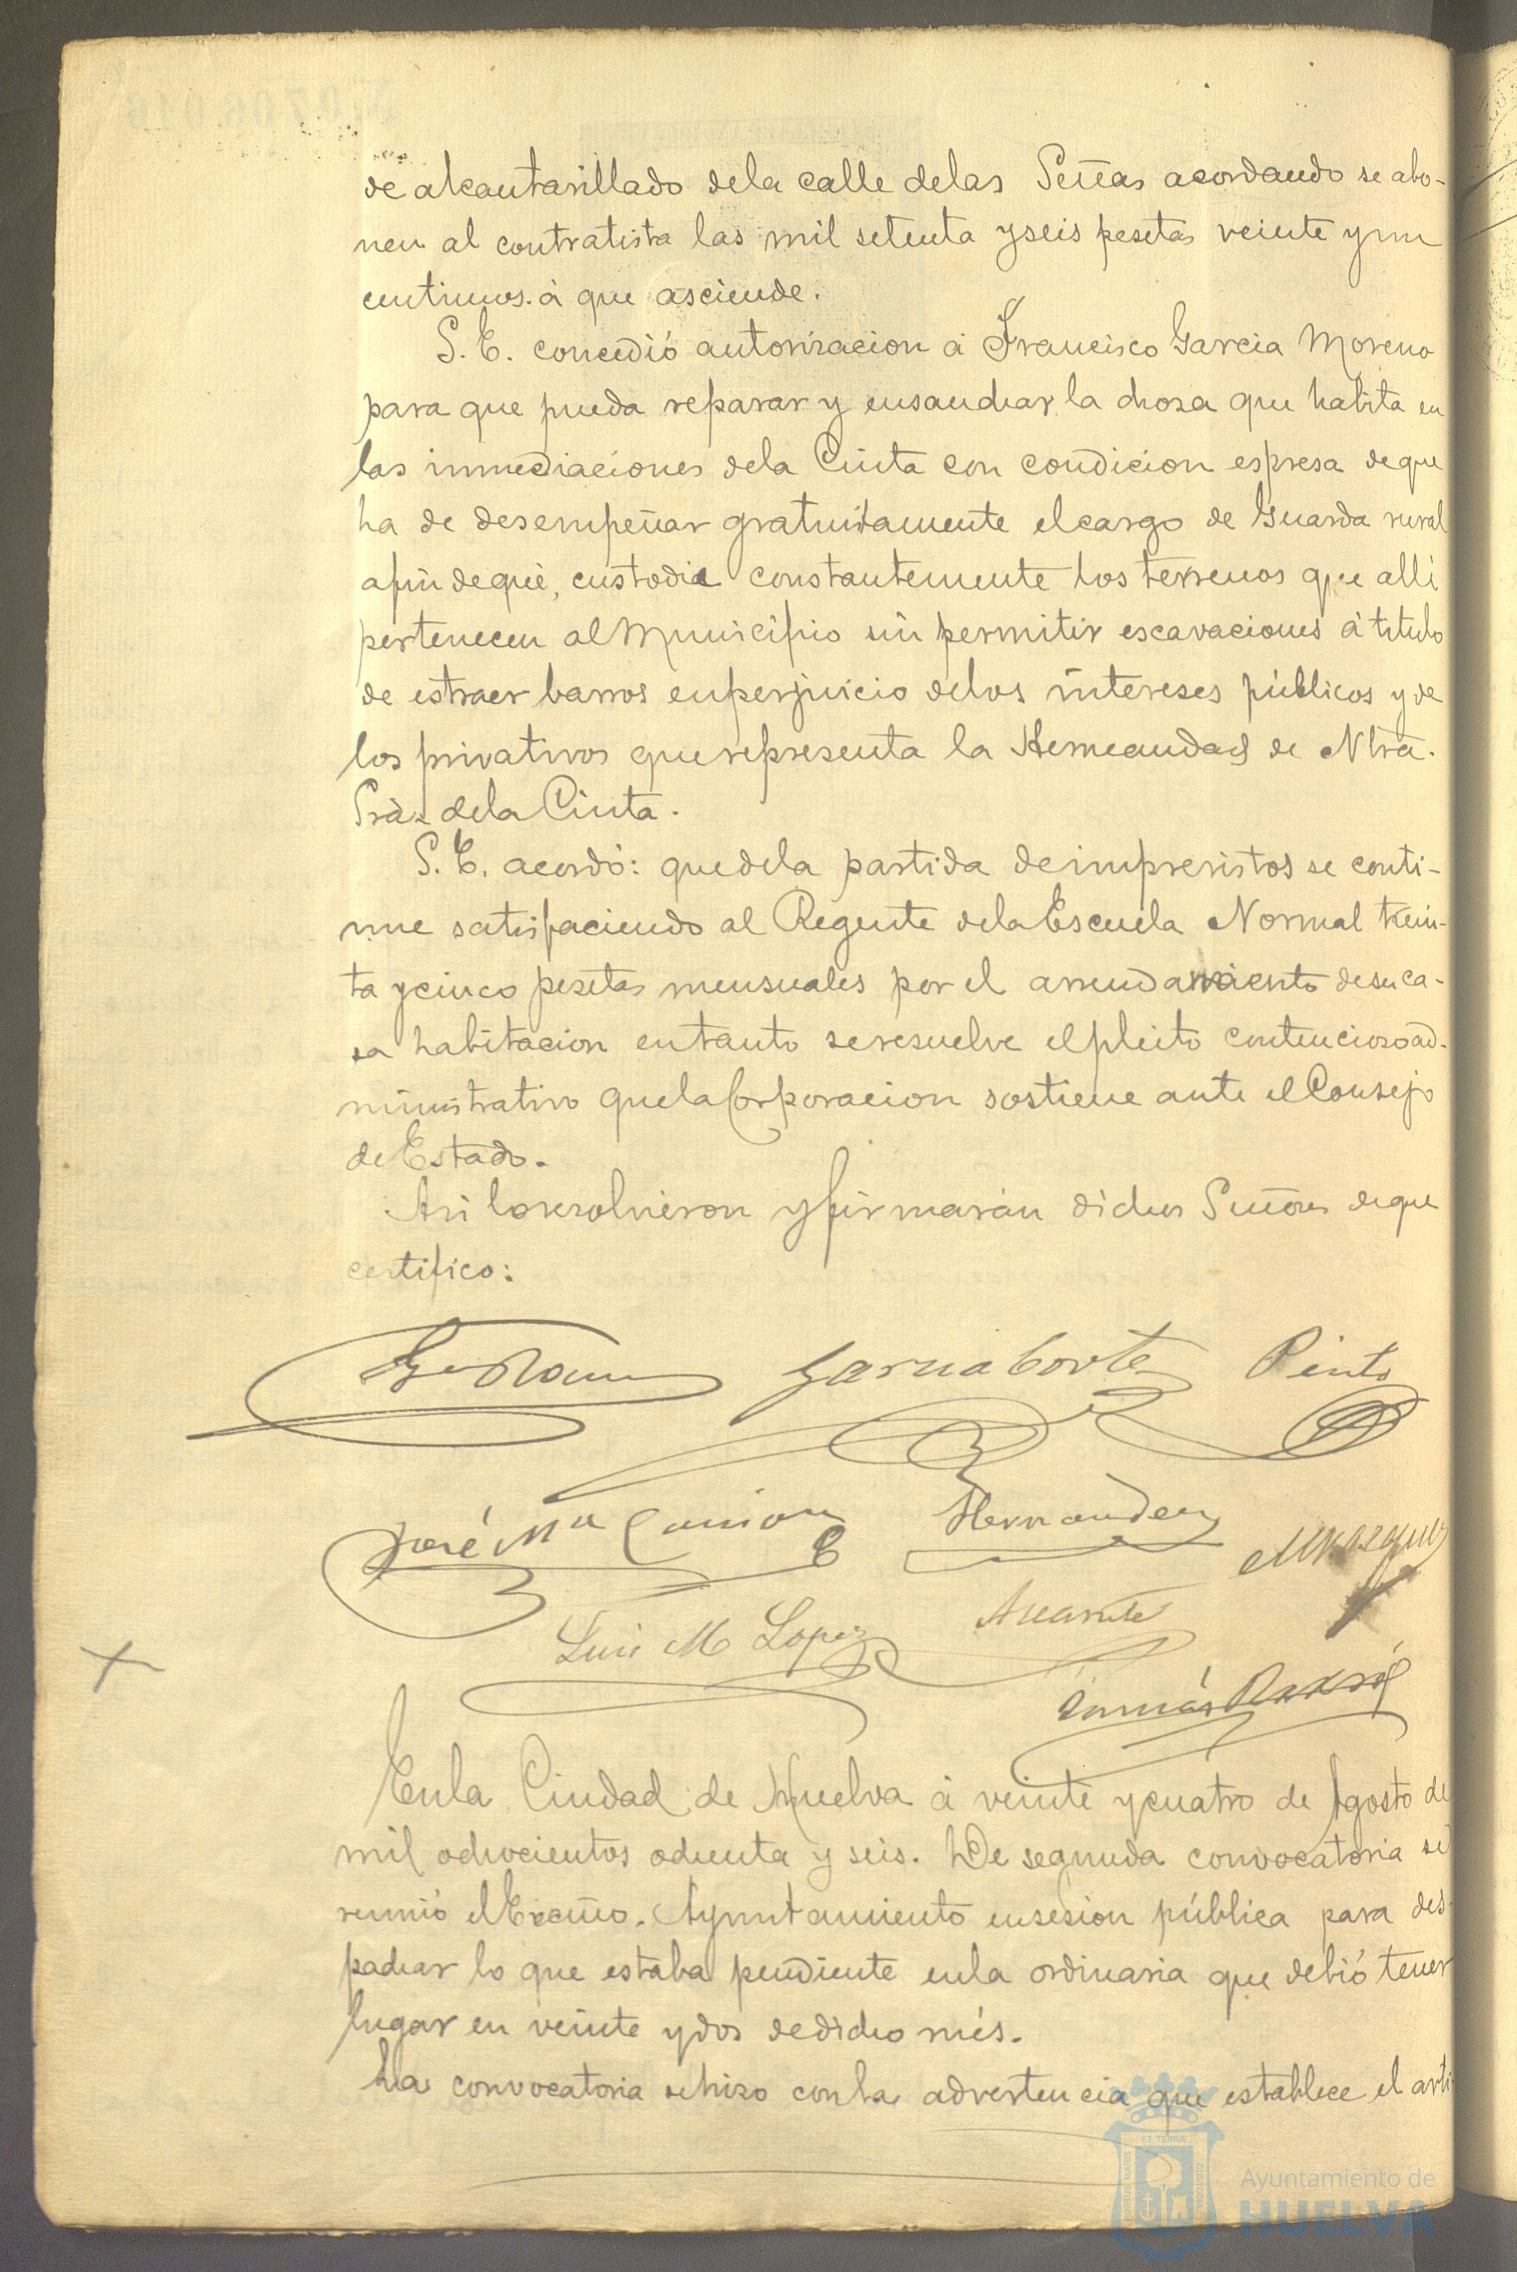 de alcantarillado dela calle delas Señas acordando se abo-
nen al contratista las mil setenta y seis pesetas veinte y un
centimos à que asciende.
S. E. concedió autorizacion à Francisco Garcia Moreno
para que pueda reparar y ensanchar la choza que habita en
las inmediaciones dela Cinta con condicion espresa de que
ha de desempeñar gratuitamente el cargo de Guarda rural
afin de que, custodie constantemente los terrenos que alli
pertenecen al Municipio sin permitir escavaciones á titulo
de estraer barros en perjuicio delos intereses públicos y de
los privativos que representa la Hermandad de Ntra.
Srà. dela Cinta.
S. E. acordó: que dela partida de imprevistos se conti-
nue satisfaciendo al Regente dela Escuela Normal trein-
ta y cinco pesetas mensuales por el arrendamiento de su ca-
sa habitacion en tanto se resuelve el pleito contencioso ad-
ministrativo que la Corporacion sostiene ante el Consejo
de Estado.
Asi lo resolvieron y firmarán dichos Señores de que
certifico:
Garcia Cortes Pinto
José Mª Hernandez
Vazquez
Luis M Lopez
Tomás
En la Ciudad de Huelva á veinte y cuatro de Agosto de
mil ochocientos ochenta y seis. De segunda convocatoria se
reunió el Excmo. Ayuntamiento en sesion pública para des-
pachar lo que estaba pendiente en la ordinaria que debió tener
lugar en veinte y dos de dicho més.
La convocatoria se hizo con la advertencia que establece el arti
ET TERRAE
Ayuntamiento de
HUELVA